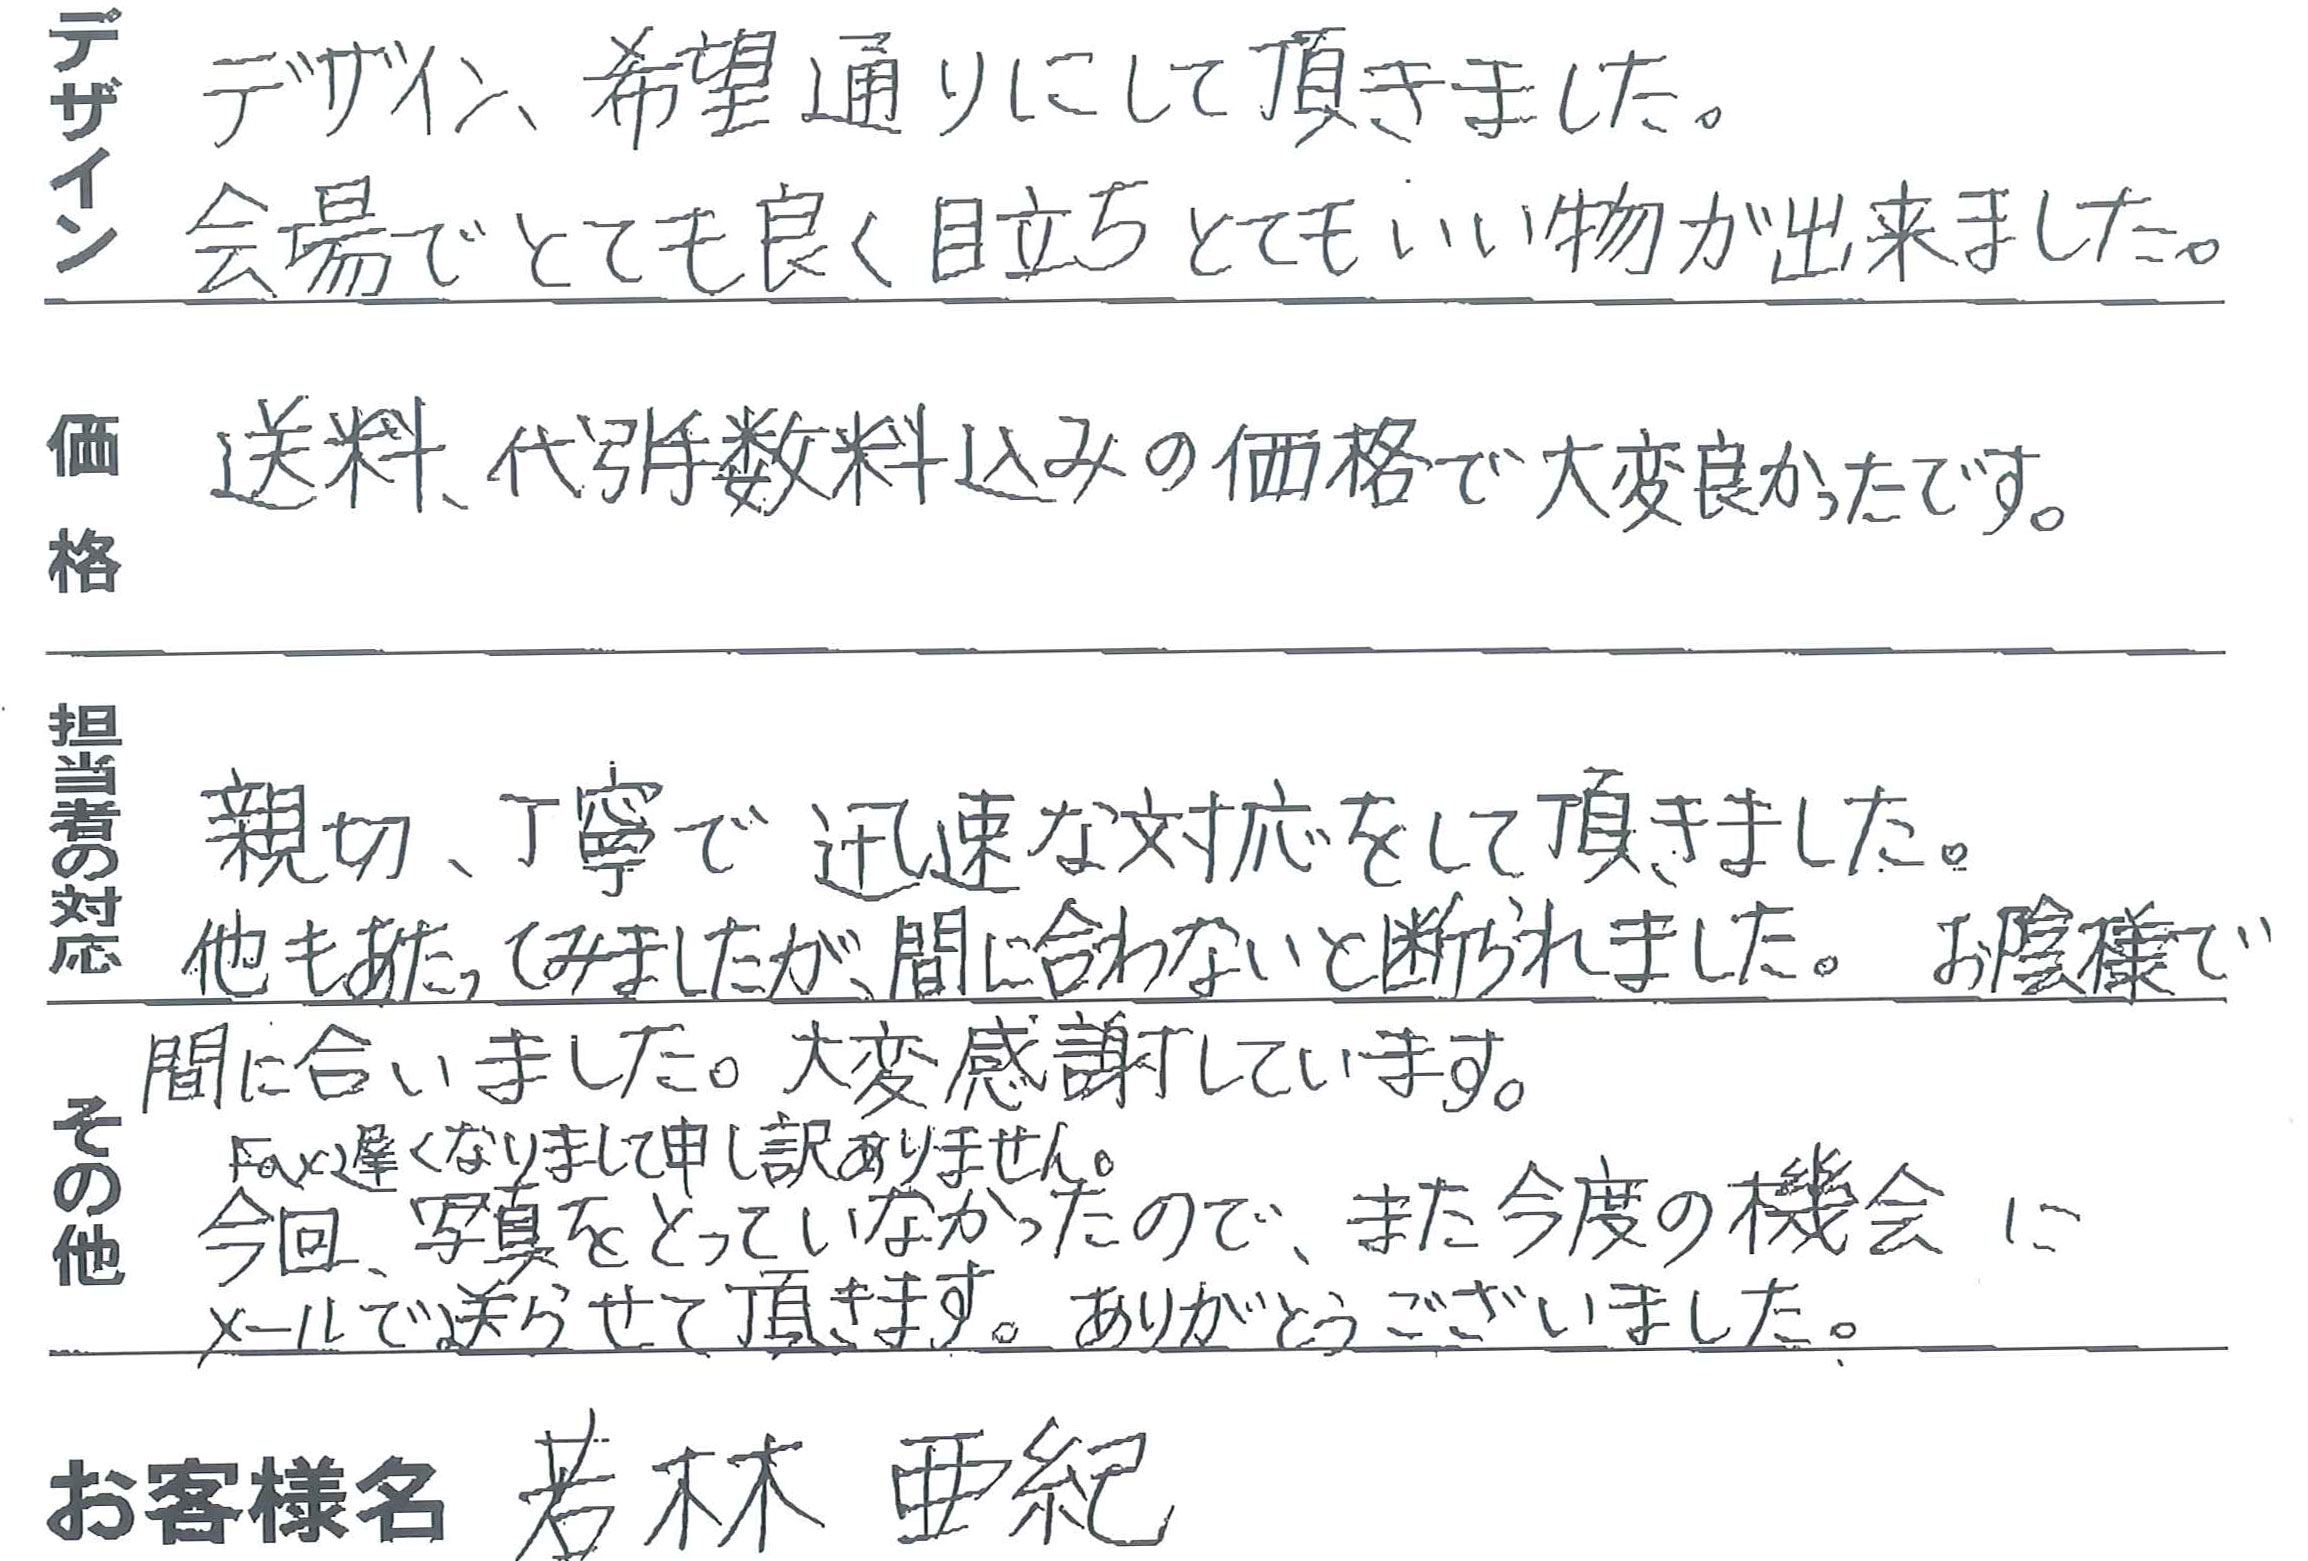 デザイン
デザイン、希望通りにして頂きました。
会場でとても良く目立ちとてもいい物が出来ました。
価格
送料、代引手数料込みの価格で大変良かったです。
担当者の対応
親切、丁寧で迅速な対応をして頂きました。
他もあたってみましたが、間に合わないと断られました。お陰様で
間に合いました。大変感謝しています。
その他
Fax遅くなりまして申し訳ありません。
今回、写真をとっていなかったので、また今度の機会に
メールで送らせて頂きます。ありがとうございました。
お客様名 若林 亜紀